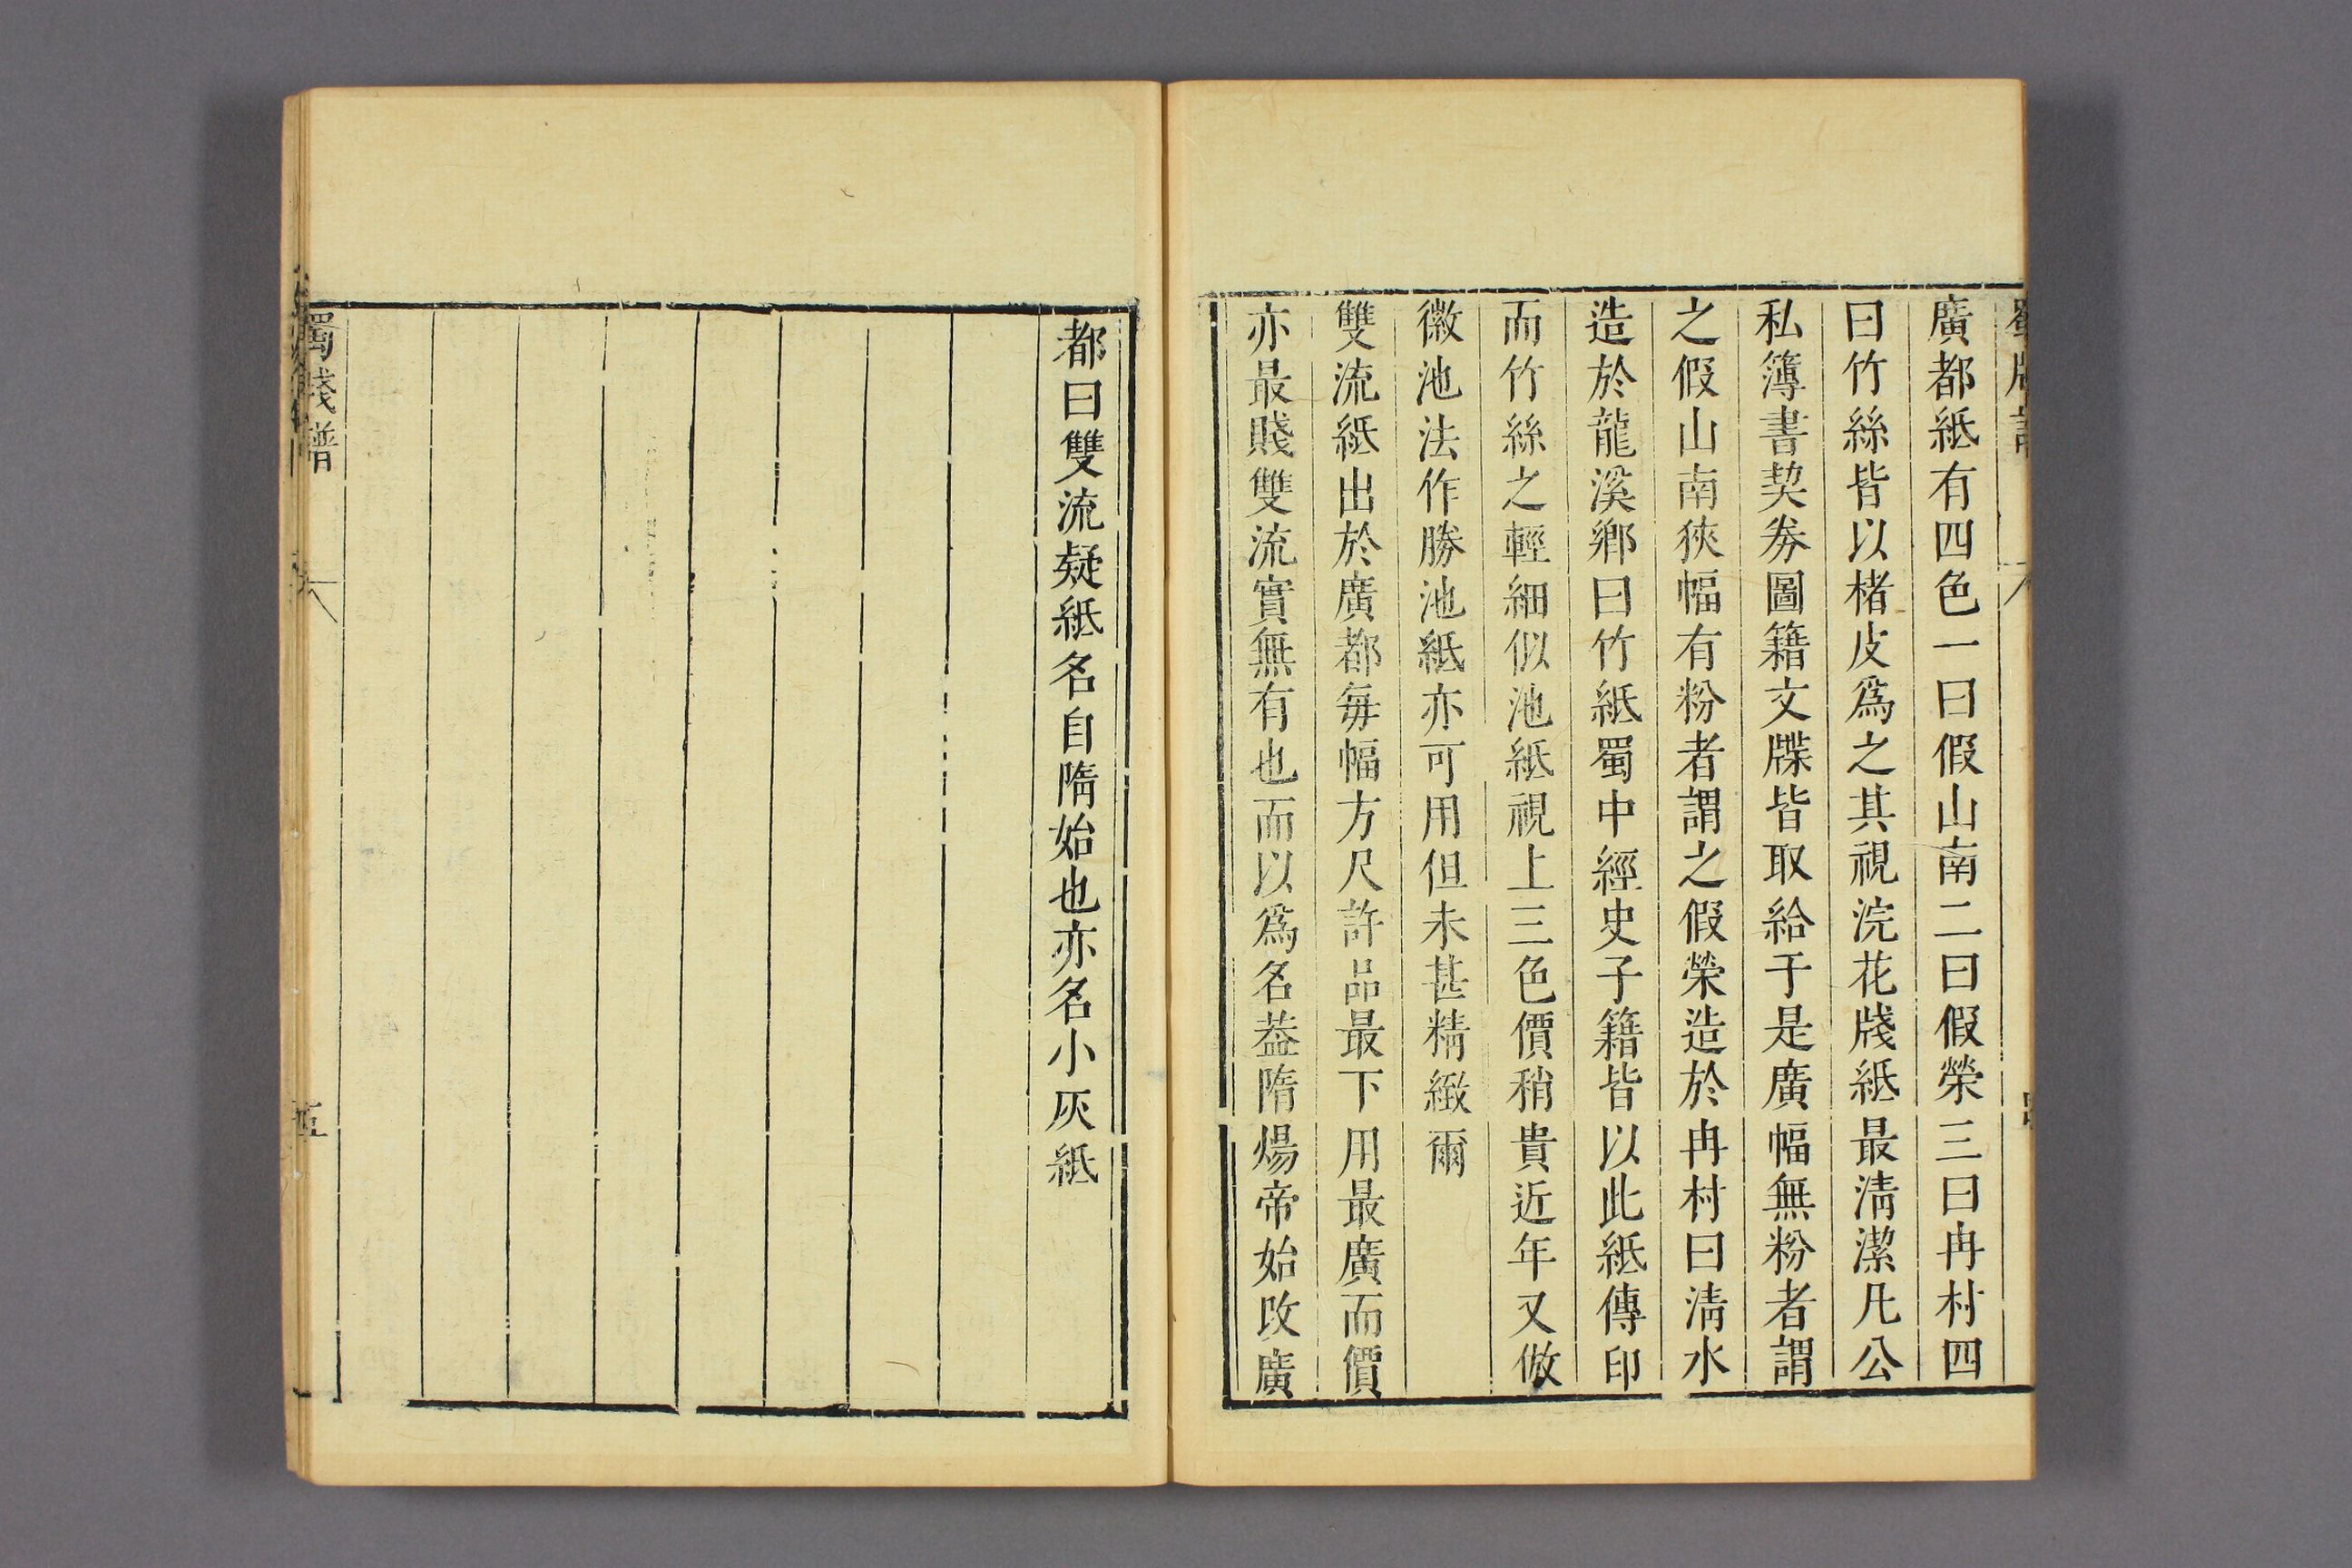 廣都紙有四色一曰假山南二曰假榮三曰冉村四
曰竹絲皆以楮皮爲之其視浣花牋紙最淸潔凡公
私簿書契券圖籍文牒皆取給于是廣幅無粉者謂
之假山南狹幅有粉者謂之假榮造於冉村曰淸水
造於龍溪鄉曰竹紙蜀中經史子籍皆以此紙傳印
而竹絲之輕細似池紙視上三色價稍貴近年又倣
徽池法作勝池紙亦可用但未甚精緻爾
雙流紙出於廣都每幅方尺許品最下用最廣而價
亦最賤雙流實無有也而以爲名葢隋煬帝始改廣
都曰雙流疑紙名自隋始也亦名小灰紙
蜀牋譜
五